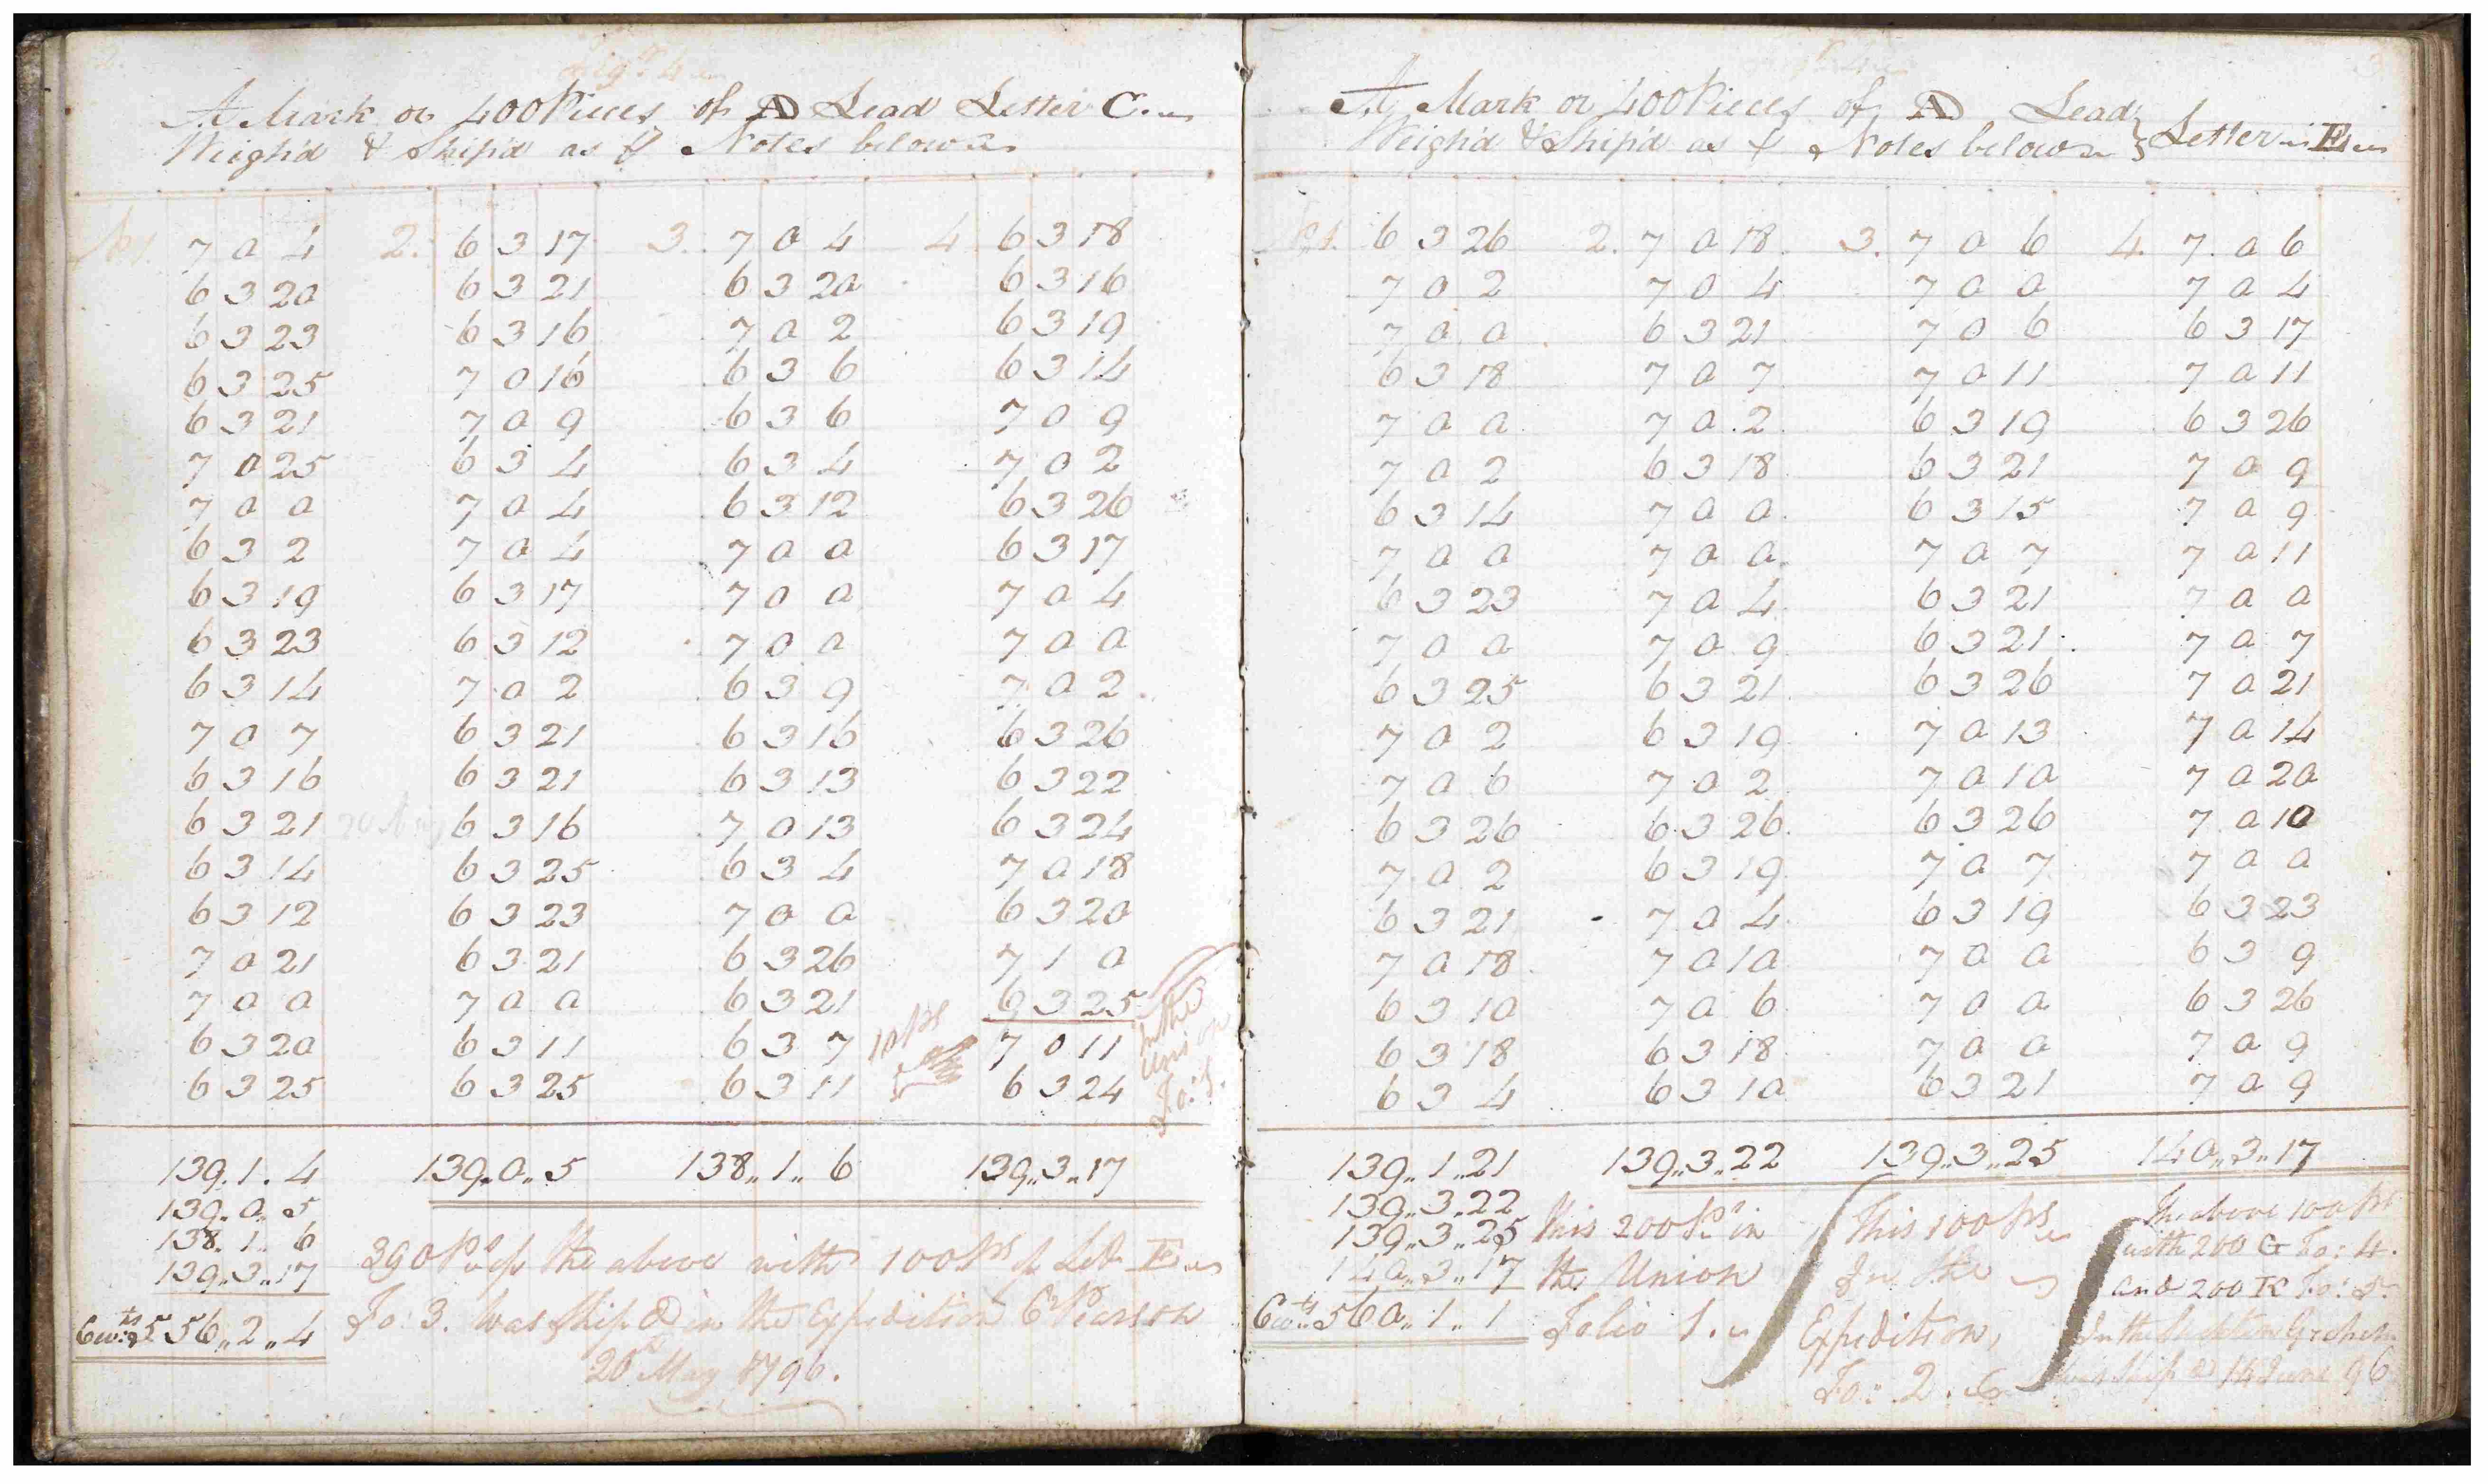 2.
A Mark or 400 Pieces of AD Lead Letter C.
Weigh'd & Ship'd as Notes below
No 1. 7 0 4 2. 6 3 17 3. 7 0 4 4. 6 3 18
6 3 20 6 3 21 6 3 20 6 3 16
6 3 23 6 3 16 7 0 2 6 3 19
6 3 25 7 0 16 6 3 6 6 3 14
6 3 21 7 0 9 6 3 6 7 0 9
7 0 25 6 3 4 6 3 4 7 0 2
7 0 0 7 0 4 6 3 12 6 3 26
6 3 2 7 0 4 7 0 0 6 3 17
6 3 19 6 3 17 7 0 0 7 0 4
6 3 23 6 3 12 7 0 0 7 0 0
6 3 14 7 0 2 6 3 9 7 0 2
7 0 7 6 3 21 6 3 16 6 3 26
6 3 16 6 3 21 6 3 13 6 3 22
6 3 21 6 3 16 7 0 13 6 3 24
6 3 14 6 3 25 6 3 4 7 0 18
6 3 12 6 3 23 7 0 0 6 3 20
7 0 21 6 3 21 6 3 26 7 1 0
7 0 0 7 0 0 6 3 21 6 3 25
6 3 20 6 3 11 6 3 7 7 0 11
6 3 25 6 3 25 6 3 11 6 3 24
10 ps
In the
Union
Fo: 1.
139.1.4 139.0.5 138.1.6 139.3.17
139.0.5
138.1.6
139.3.17
Cwts 556.2.4
390 Ps of the above with 100 Ps of Lett. E
Fo: 3. Was Ship'd in the Expedition Cn Pearson
20th May 1796.
3
A Mark or 400 Pieces of AD Lead } Letter E
Weigh'd & Ship'd as Notes below
No 1. 6 3 26 2. 7 0 18 3. 7 0 6 4. 7 0 6
7 0 2 7 0 4 7 0 0 7 0 4
7 0 0 6 3 21 7 0 6 6 3 17
6 3 18 7 0 7 7 0 11 7 0 11
7 0 0 7 0 2 6 3 19 6 3 26
7 0 2 6 3 18 6 3 21 7 0 9
6 3 14 7 0 0 6 3 15 7 0 9
7 0 0 7 0 0 7 0 7 7 0 11
6 3 23 7 0 4 6 3 21 7 0 0
7 0 0 7 0 9 6 3 21 7 0 7
6 3 25 6 3 21 6 3 26 7 0 21
7 0 2 6 3 19 7 0 13 7 0 14
7 0 6 7 0 2 7 0 10 7 0 20
6 3 26 6 3 26 6 3 26 7 0 10
7 0 2 6 3 19 7 0 7 7 0 0
6 3 21 7 0 4 6 3 19 6 3 23
7 0 18 7 0 10 7 0 0 6 3 9
6 3 10 7 0 6 7 0 0 6 3 26
6 3 18 6 3 18 7 0 0 7 0 9
6 3 4 6 3 10 6 3 21 7 0 9
139.1.21 139.3.22 139.3.25 140.3.17
139.3.22
139.3.25
140.3.17
Cwts 560.1.1
This 200 Ps in
the Union
Folio 1.
This 100 Ps
In the
Expedition,
Fo: 2.
The above 100 Ps
with 200 G Fo: 4.
and 200 K Fo: 5.
In the
was Ship'd 14 June 96